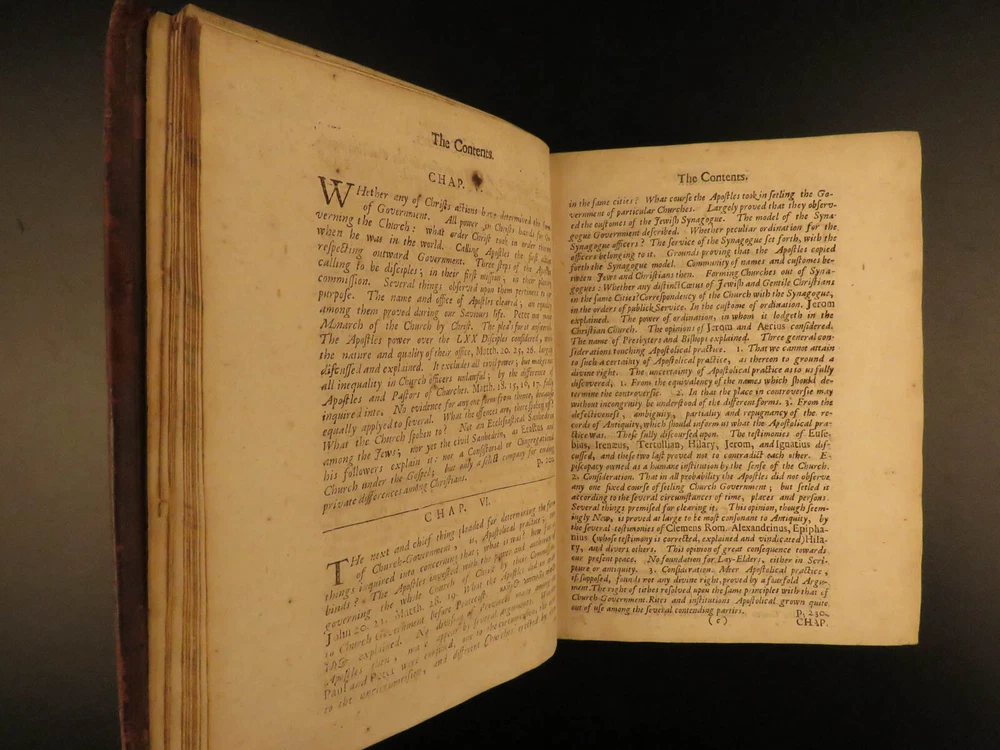 The Contents.
CHAP. V.
WHether any of Christs actions have determined the form
of Government. All power in Christs hands for Go-
verning the Church: what order Christ took in order thereto
when he was in the world. Calling Apostles the first action
respecting outward Government. Three steps of the Apostles
calling to be disciples; in their first mission; in their plenary
commission. Several things observed upon them pertinent to our
purpose. The name and office of Apostles cleared; an equality
among them proved during our Saviours life. Peter not made
Monarch of the Church by Christ. The pleas for it answered.
The Apostles power over the LXX Disciples considered, with
the nature and quality of their office, Matth. 20. 25, 26. largely
discussed and explained. It excludes all civil power; but makes not
all inequality in Church officers unlawful; by the difference of
Apostles and Pastors of Churches. Matth. 18. 15, 16, 17. fully
inquired into. No evidence for any one form from thence, because
equally applyed to several. What the offences are, there spoken of?
What the Church spoken to? Not an Ecclesiastical Sanhedrin
among the Jews; nor yet the civil Sanhedrin, as Erastus and
his followers explain it: nor a Consistorial or Congregational
Church under the Gospel; but only a select company for ending
private differences among Christians.
CHAP. VI.
THe next and chief thing pleaded for determining the form
of Church-Government, is, Apostolical practice;
things inquired into concerning that; what it was? how far it
binds? The Apostles invested with the power and authority of
governing the whole Church of Christ by their Commission
John 20. 21. Matth. 28. 19. What the Apostles did in order
to Church Government before Pentecost.
explained. No
Apostles
Paul and Peter were confined, one to the circumcision, the other
to the uncircumcision, and different Churches erected by
The Contents.
in the same cities? What course the Apostles took in setling the Go-
vernment of particular Churches. Largely proved that they observ-
ed the customes of the Jewish Synagogue. The model of the Syna-
gogue Government described. Whether peculiar ordination for the
Synagogue officers? The service of the Synagogue set forth, with the
officers belonging to it. Grounds proving that the Apostles copied
forth the Synagogue model. Community of names and customes be-
tween Jews and Christians then. Forming Churches out of Syna-
gogues: Whether any distinct Cœtus of Jewish and Gentile Christians
in the same Cities? Correspondency of the Church with the Synagogue,
in the orders of publick Service. In the custome of ordination. Jerom
explained. The power of ordination, in whom it lodgeth in the
Christian Church. The opinions of Jerom and Aerius considered.
The name of Presbyters and Bishops explained. Three general con-
siderations touching Apostolical practice. 1. That we cannot attain
to such a certainty of Apostolical practice, as thereon to ground a
divine right. The uncertainty of Apostolical practice as to us fully
discovered, 1. From the equivalency of the names which should de-
termine the controversie. 2. In that the place in controversie may
without incongruity be understood of the different forms. 3. From the
defectiveness, ambiguity, partiality and repugnancy of the re-
cords of Antiquity, which should inform us what the Apostolical pra-
ctice was. These fully discoursed upon. The testimonies of Euse-
bius, Irenæus, Tertullian, Hilary, Jerom, and Ignatius dis-
cussed, and these two last proved not to contradict each other. E-
piscopacy owned as a humane institution by the sense of the Church.
2. Consideration. That in all probability the Apostles did not observe
any one fixed course of setling Church Government; but setled it
according to the several circumstances of time, places and persons.
Several things premised for clearing it. This opinion, though seem-
ingly New, is proved at large to be most consonant to Antiquity, by
the several testimonies of Clemens Rom. Alexandrinus, Epipha-
nius (whose testimony is corrected, explained and vindicated) Hila-
ry, and divers others. This opinion of great consequence towards
our present peace. No foundation for Lay-Elders, either in Scri-
pture or antiquity. 3. Consideration. Meer Apostolical practice,
if supposed, founds not any divine right, proved by a fourfold Argu-
ment. The right of tithes resolved upon the same principles with that of
Church-Government. Rites and institutions Apostolical grown quite
out of use among the several contending parties. p. 230.
(c) CHAP.